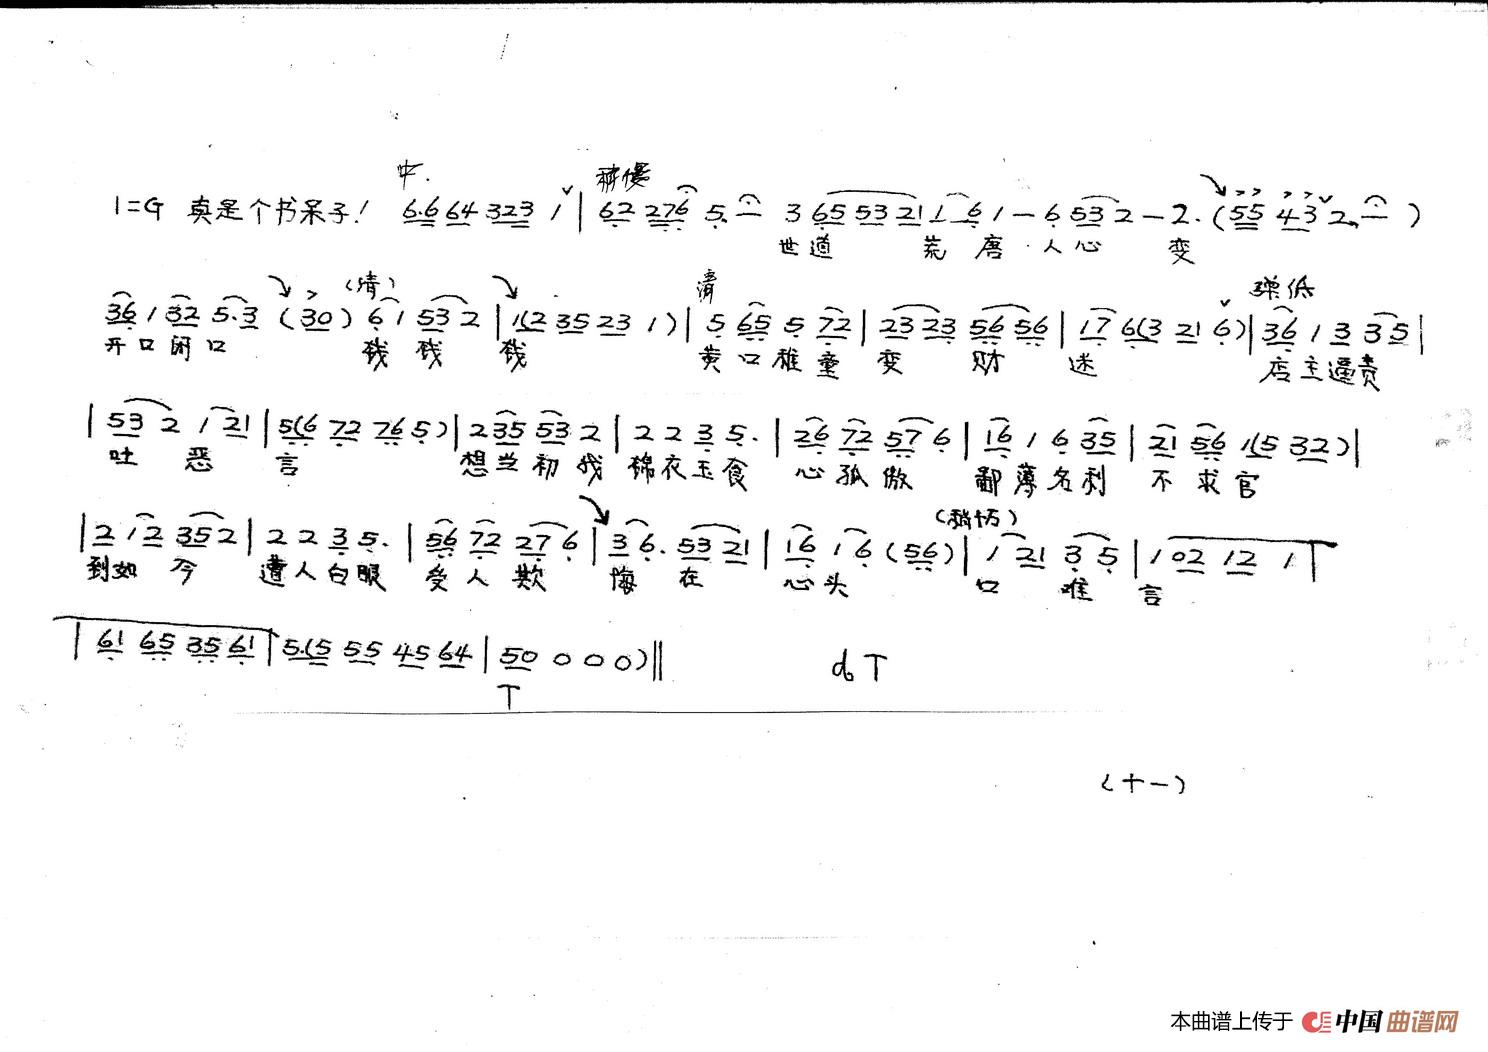 中.
稍慢
1=G 真是个书呆子! 6.6 64 323 1 | 62 276 5. — 3 65 53 21 1 6 1 — 6 53 2 — 2. (55 43 2. — )
世道 荒 唐 · 人 心 变
(清)
清
弹低
36 1 32 5.3 (30) 6 1 53 2 | 1(2 35 23 1) | 5 65 5 72 | 23 23 56 56 | 17 6(3 21 6) | 36 1 3 35 |
开口闭口 钱 钱 钱 黄口稚童 变 财 迷 店主逼责
| 53 2 1 21 | 5(6 72 76 5) | 2 35 53 2 | 2 2 3 5. | 26 72 57 6 | 16 1 6 35 | 21 56 1(5 32) |
吐 恶 言 想当初 我 锦衣玉食 心孤傲 鄙薄名利 不求官
| 2 12 35 2 | 2 2 3 5. | 56 72 27 6 | 3 6. 53 21 | 16 1 6 (56) | 1 21 3 5 | 1 02 12 1 |
到如 今 遭人白眼 受人欺 悔 在 心头 口 难 言
| 61 65 35 61 | 5.(5 55 45 64 | 50 0 0 0) ‖
T
do T
(十一)
本曲谱上传于 中国曲谱网